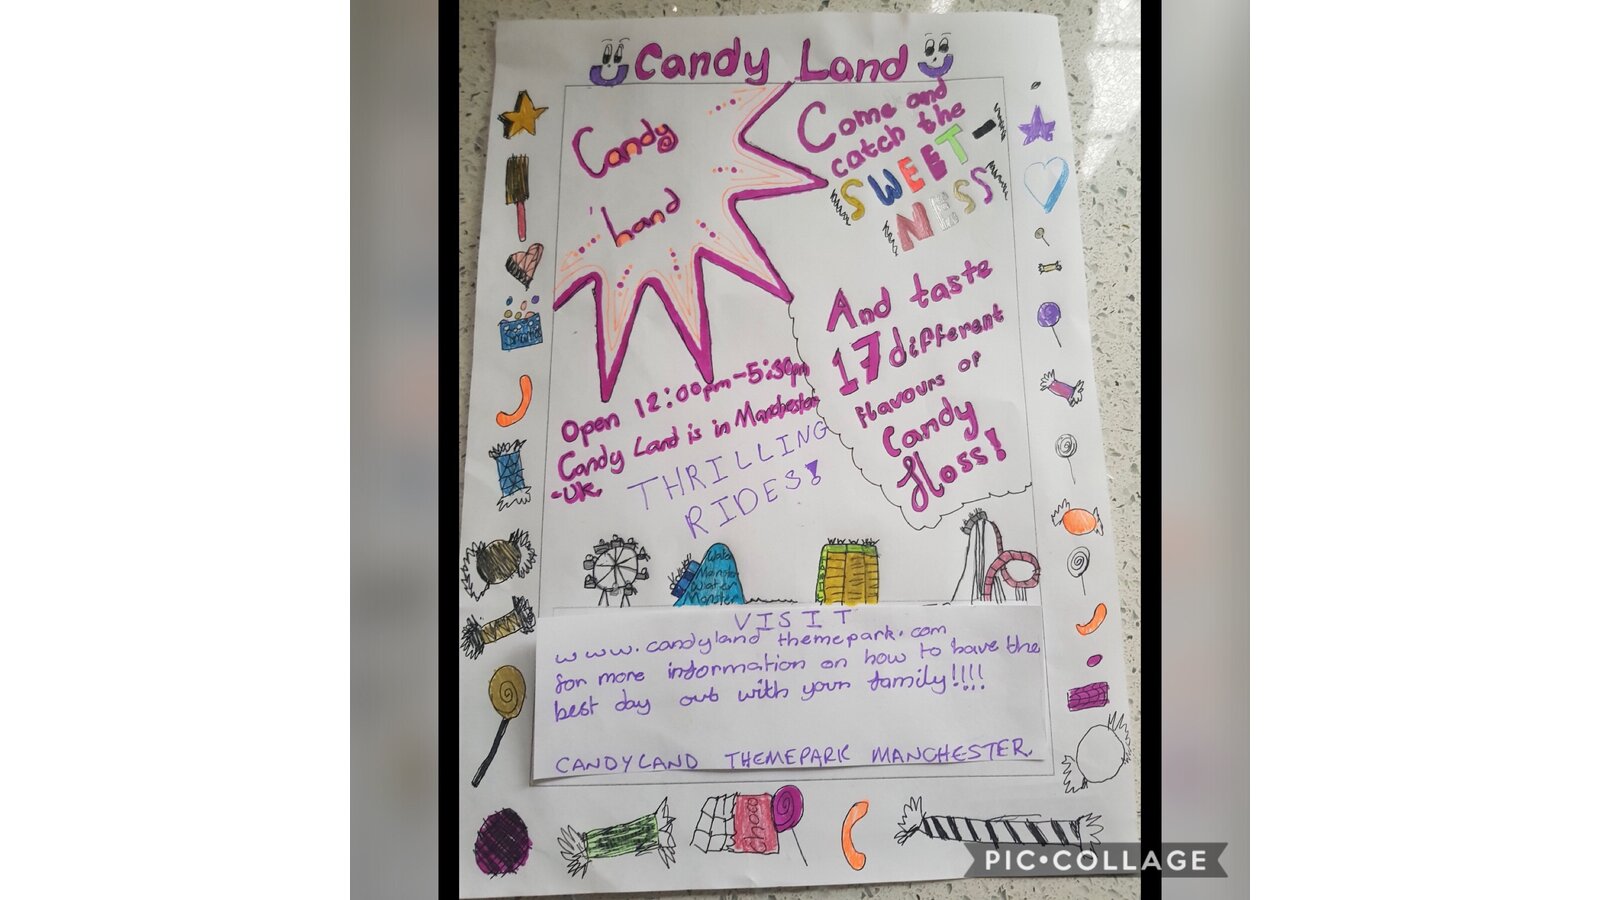 Candy Land
Candy
Land
Come and
catch the
SWEET-
NESS
And taste
17 different
flavours of
Candy
floss!
Open 12:00pm-5:30pm
Candy Land is in Manchester
-UK.
THRILLING
RIDES!
Water
Monster
Water
Monster
VISIT
www.candyland themepark.com
for more information on how to have the
best day out with your family!!!!
CANDYLAND THEMEPARK MANCHESTER.
choco
PIC•COLLAGE